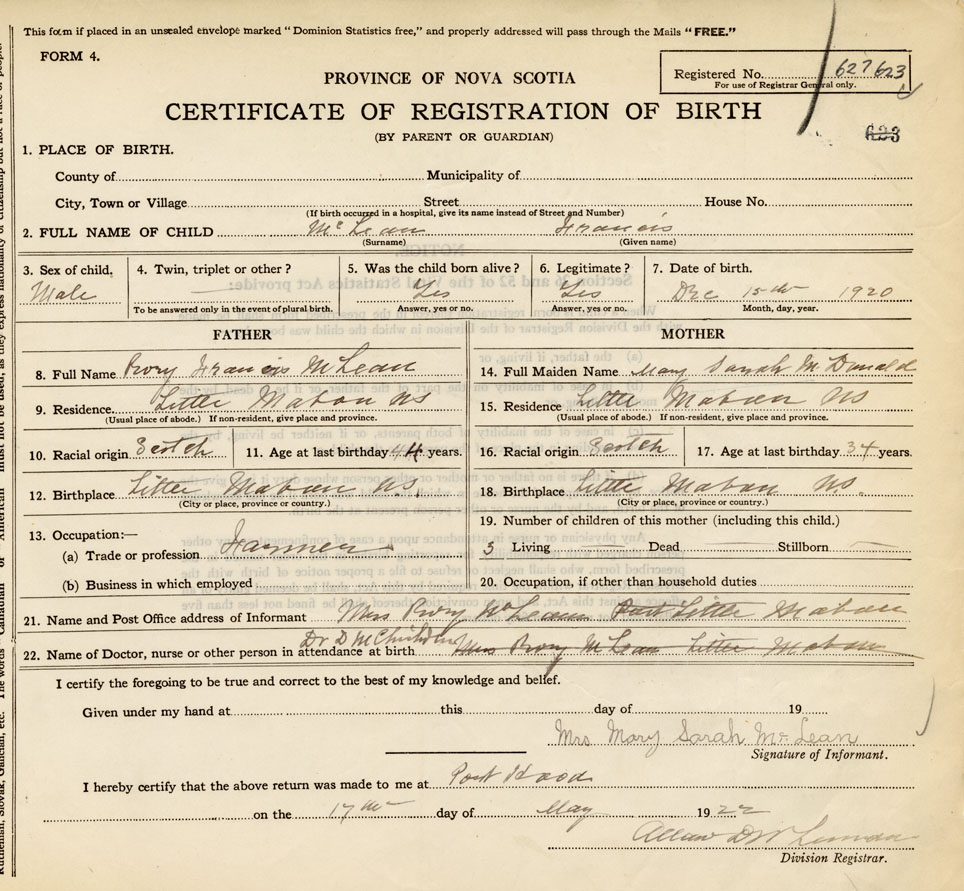 This form if placed in an unsealed envelope marked "Dominion Statistics free," and properly addressed will pass through the Mails "FREE."
FORM 4.
PROVINCE OF NOVA SCOTIA
Registered No. 627623
For use of Registrar General only.
CERTIFICATE OF REGISTRATION OF BIRTH
(BY PARENT OR GUARDIAN)
623
1. PLACE OF BIRTH.
County of Municipality of
City, Town or Village Street House No.
(If birth occurred in a hospital, give its name instead of Street and Number)
2. FULL NAME OF CHILD McLean Francis
(Surname) (Given name)
3. Sex of child. 4. Twin, triplet or other? 5. Was the child born alive? 6. Legitimate? 7. Date of birth.
Male Yes Yes Dec 15th 1920
To be answered only in the event of plural birth. Answer, yes or no. Answer, yes or no. Month, day, year.
FATHER MOTHER
8. Full Name Rory Francis McLean 14. Full Maiden Name Mary Sarah McDonald
9. Residence Little Mabou NS 15. Residence Little Mabou NS
(Usual place of abode.) If non-resident, give place and province. (Usual place of abode.) If non-resident, give place and province.
10. Racial origin Scotch 11. Age at last birthday 44 years. 16. Racial origin Scotch 17. Age at last birthday 34 years.
12. Birthplace Little Mabou N.S. 18. Birthplace Little Mabou NS.
(City or place, province or country.) (City or place, province or country.)
13. Occupation:— 19. Number of children of this mother (including this child.)
(a) Trade or profession Farmer 5 Living Dead Stillborn
(b) Business in which employed 20. Occupation, if other than household duties
21. Name and Post Office address of Informant Mrs Rory McLean Little Mabou
22. Name of Doctor, nurse or other person in attendance at birth Dr D Mrs Rory McLean Little Mabou
I certify the foregoing to be true and correct to the best of my knowledge and belief.
Given under my hand at this day of 19
Mrs Mary Sarah McLean
Signature of Informant.
I hereby certify that the above return was made to me at Port Hood
on the 17th day of May 1922
Allan
Division Registrar.